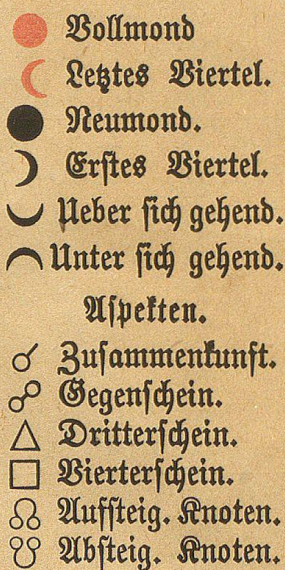 Vollmond
Letztes Viertel.
Neumond.
Erstes Viertel.
Ueber sich gehend.
Unter sich gehend.
Aspekten.
☌ Zusammenkunft.
☍ Gegenschein.
△ Dritterschein.
□ Vierterschein.
☊ Aufsteig. Knoten.
☋ Absteig. Knoten.